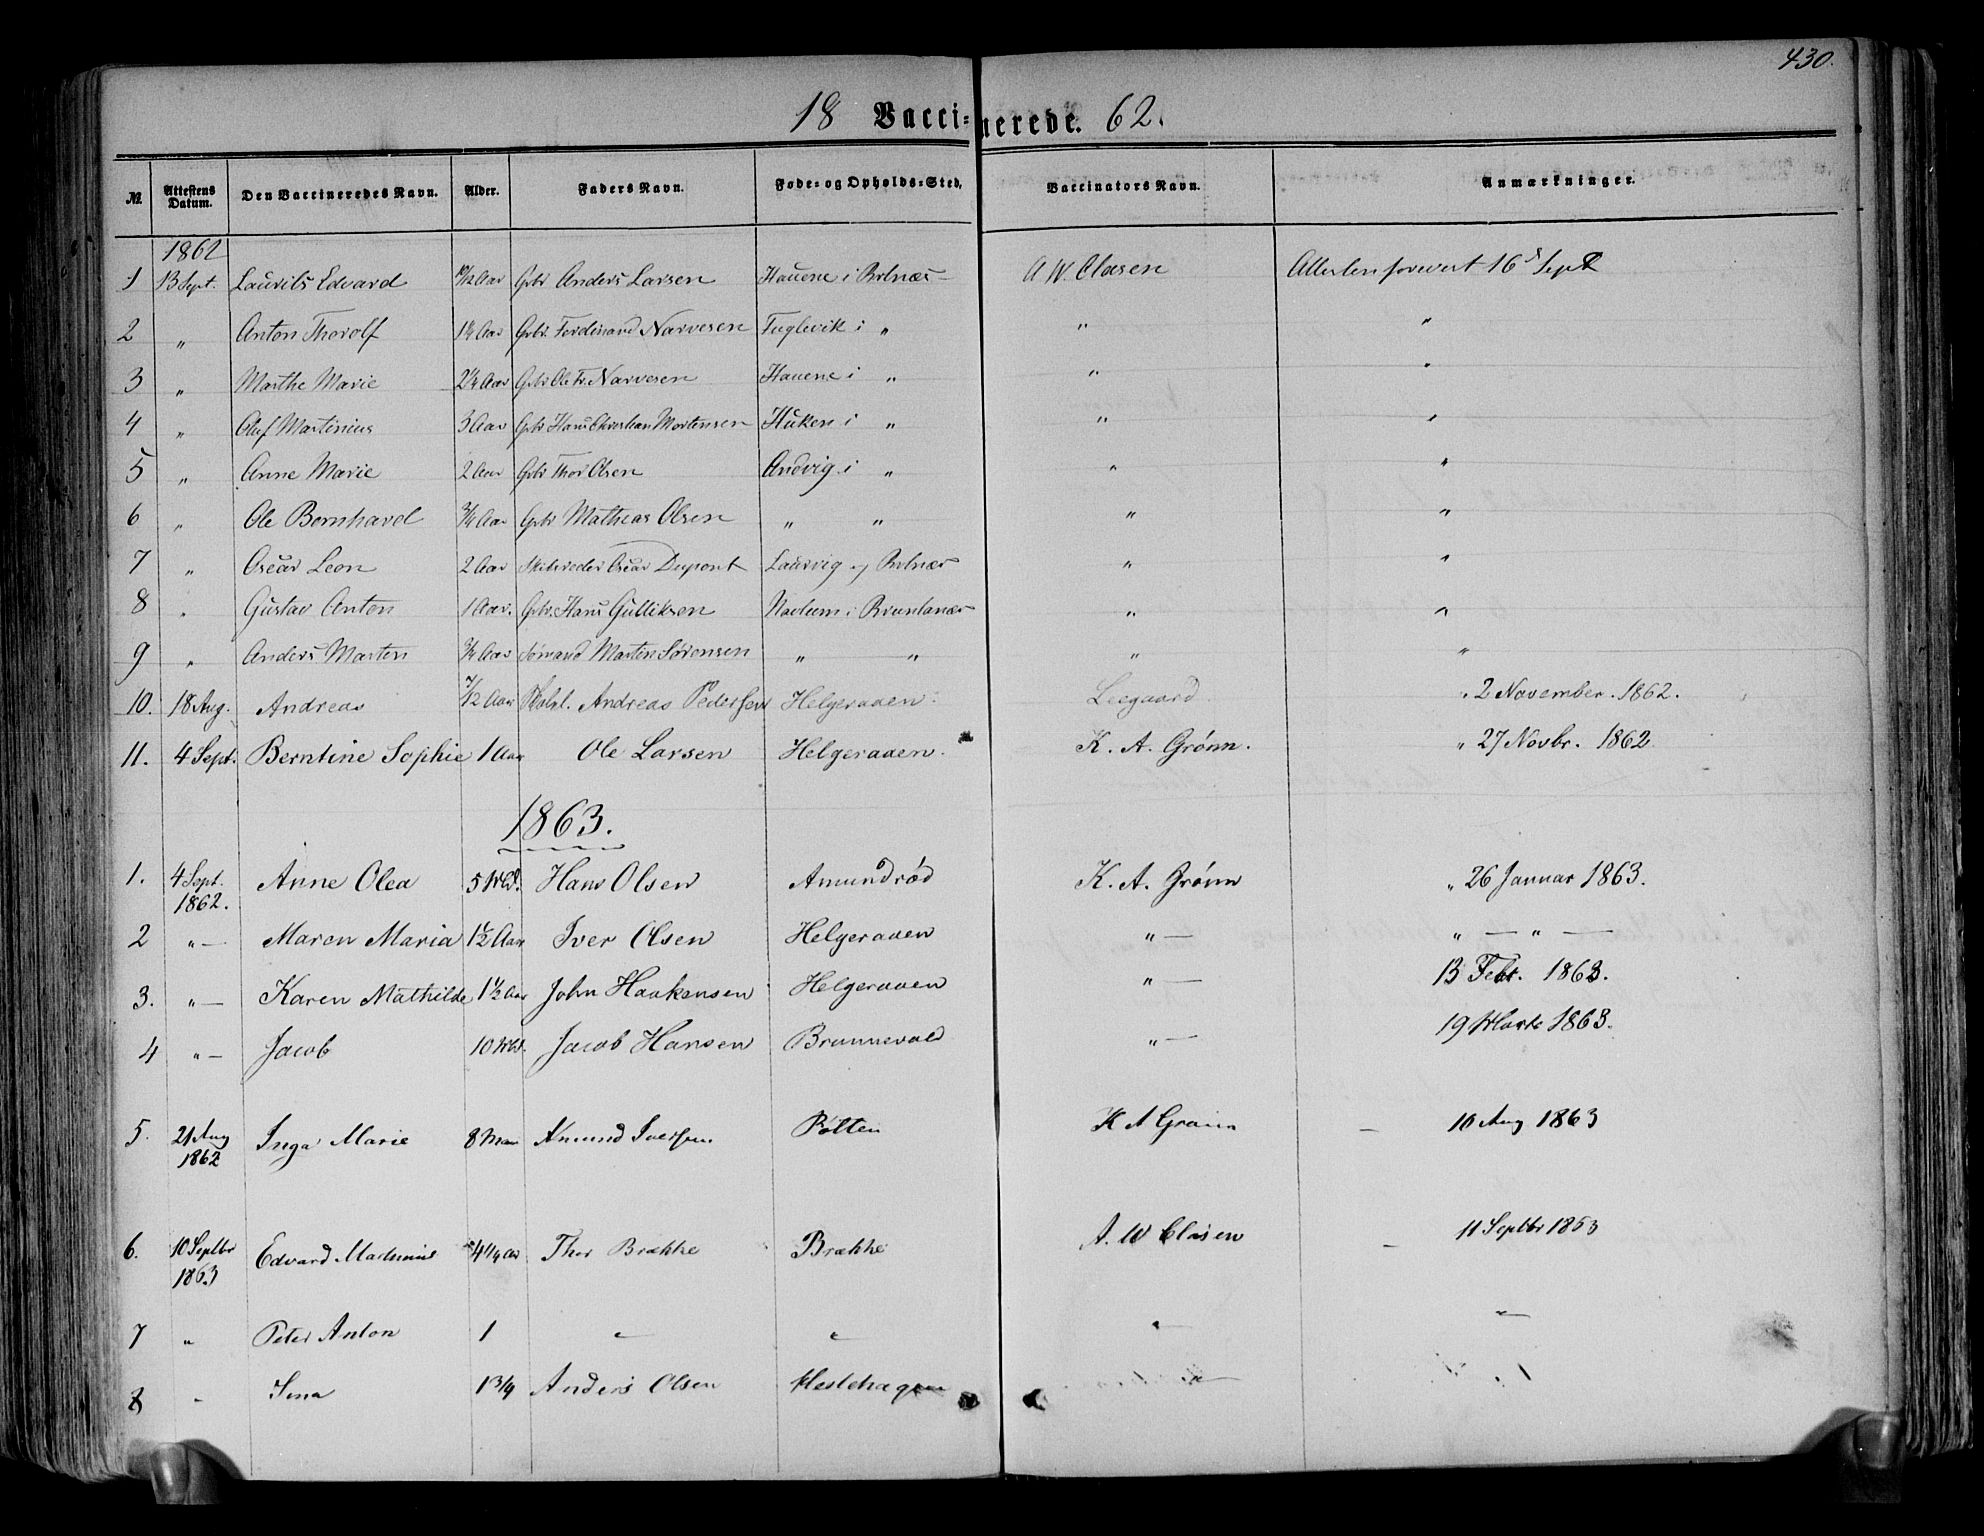 430.
18 Vaccinerede. 62.
№ Attestens Datum. Den Vaccineredes Navn. Alder. Faders Navn. Føde- og Opholds-Sted. Vaccinators Navn. Anmærkninger.
1862
1 13 Sept. Laurits Edvard 10/12 Aar Gbr Anders Larsen Hauene i Brlnæs A W. Clasen Attesten forevist 16d Sept
2 " Anton Thorolf 1¼ Aar Gbr. Ferdinand Narvesen Fuglevik i " " "
3 " Marthe Marie 2¼ Aar Gbr Ole Fr. Narvesen Hauene i " " "
4 " Oluf Martinius 3 Aar Gbr Hans Christian Mortensen Huken i " " "
5 " Anne Marie 2 Aar Gbr Thor Olsen Andvig i " " "
6 " Ole Bernhard ¾ Aar Gbr Mathias Olsen " " " "
7 " Oscar Leon 2 Aar Skibsreder Oscar Dupont Laurvig og Brlnæs " "
8 " Gustav Anton 1 Aar. Gbr. Hans Gulliksen Nalum i Brunlanæs " "
9 " Anders Martin ¾ Aar Sømand Martin Sørensen " " " "
10. 18 Aug. Andreas 7/12 Aar Andreas Pedersen Helgeraaen Leegaard " 2 November. 1862.
11. 4 Sept. Berntine Sophie 1 Aar Ole Larsen Helgeraaen. K. A. Grønn. " 27 Novbr. 1862.
1863.
1. 4 Sept. 1862. Anne Olea 5 Md. Hans Olsen Amundrød K. A. Grønn " 26 Januar 1863.
2 " — Maren Maria 1½ Aar Iver Olsen Helgeraaen " — " — " —
3. " — Karen Mathilde 1½ Aar John Haakensen Helgeraaen " — 13 Febr. 1863.
4 " — Jacob 10 Md. Jacob Hansen Brunnevald " — 19 Marts 1863.
5. 21 Aug 1862 Inga Marie 8 Man Amund Iversen Pølten K A Grønn — 10 Aug 1863
6. 10 Septbr 1863 Edvard Martinius 4¼ Aar Thor Brække Brække A. W Clasen — 11 Septbr 1863
7 " Peter Anton 1 " " " "
8 " Sina 1 3/4 Anders Olsen Hestehagen "